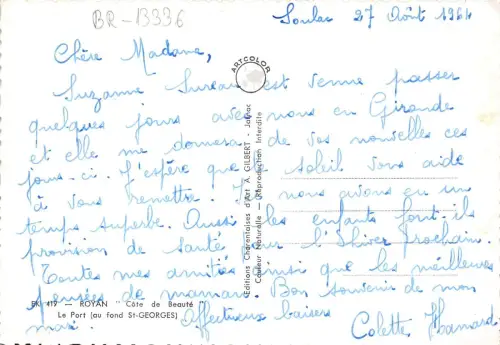 BR-13336
Soulac 27 Août 1964
Chère Madame,
Suzanne est venue passer
quelques jours avec nous en Gironde
et elle me donnera de vos nouvelles ces
jours-ci. J'espère que le soleil vous aide
à vous remettre. Ici nous avons eu un
temps superbe. Aussi les enfants font-ils
provision de santé pour l'Hiver prochain.
Toutes mes amitiés ainsi que les meilleures
pensées de maman. Bon souvenir de mon
mari. Affectueux baisers
Colette
ARTCOLOR
Editions Charentaises d'Art A. GILBERT - Jarnac
Couleur Naturelle — Reproduction Interdite
EK 419 — ROYAN "Côte de Beauté"
Le Port (au fond St-GEORGES)